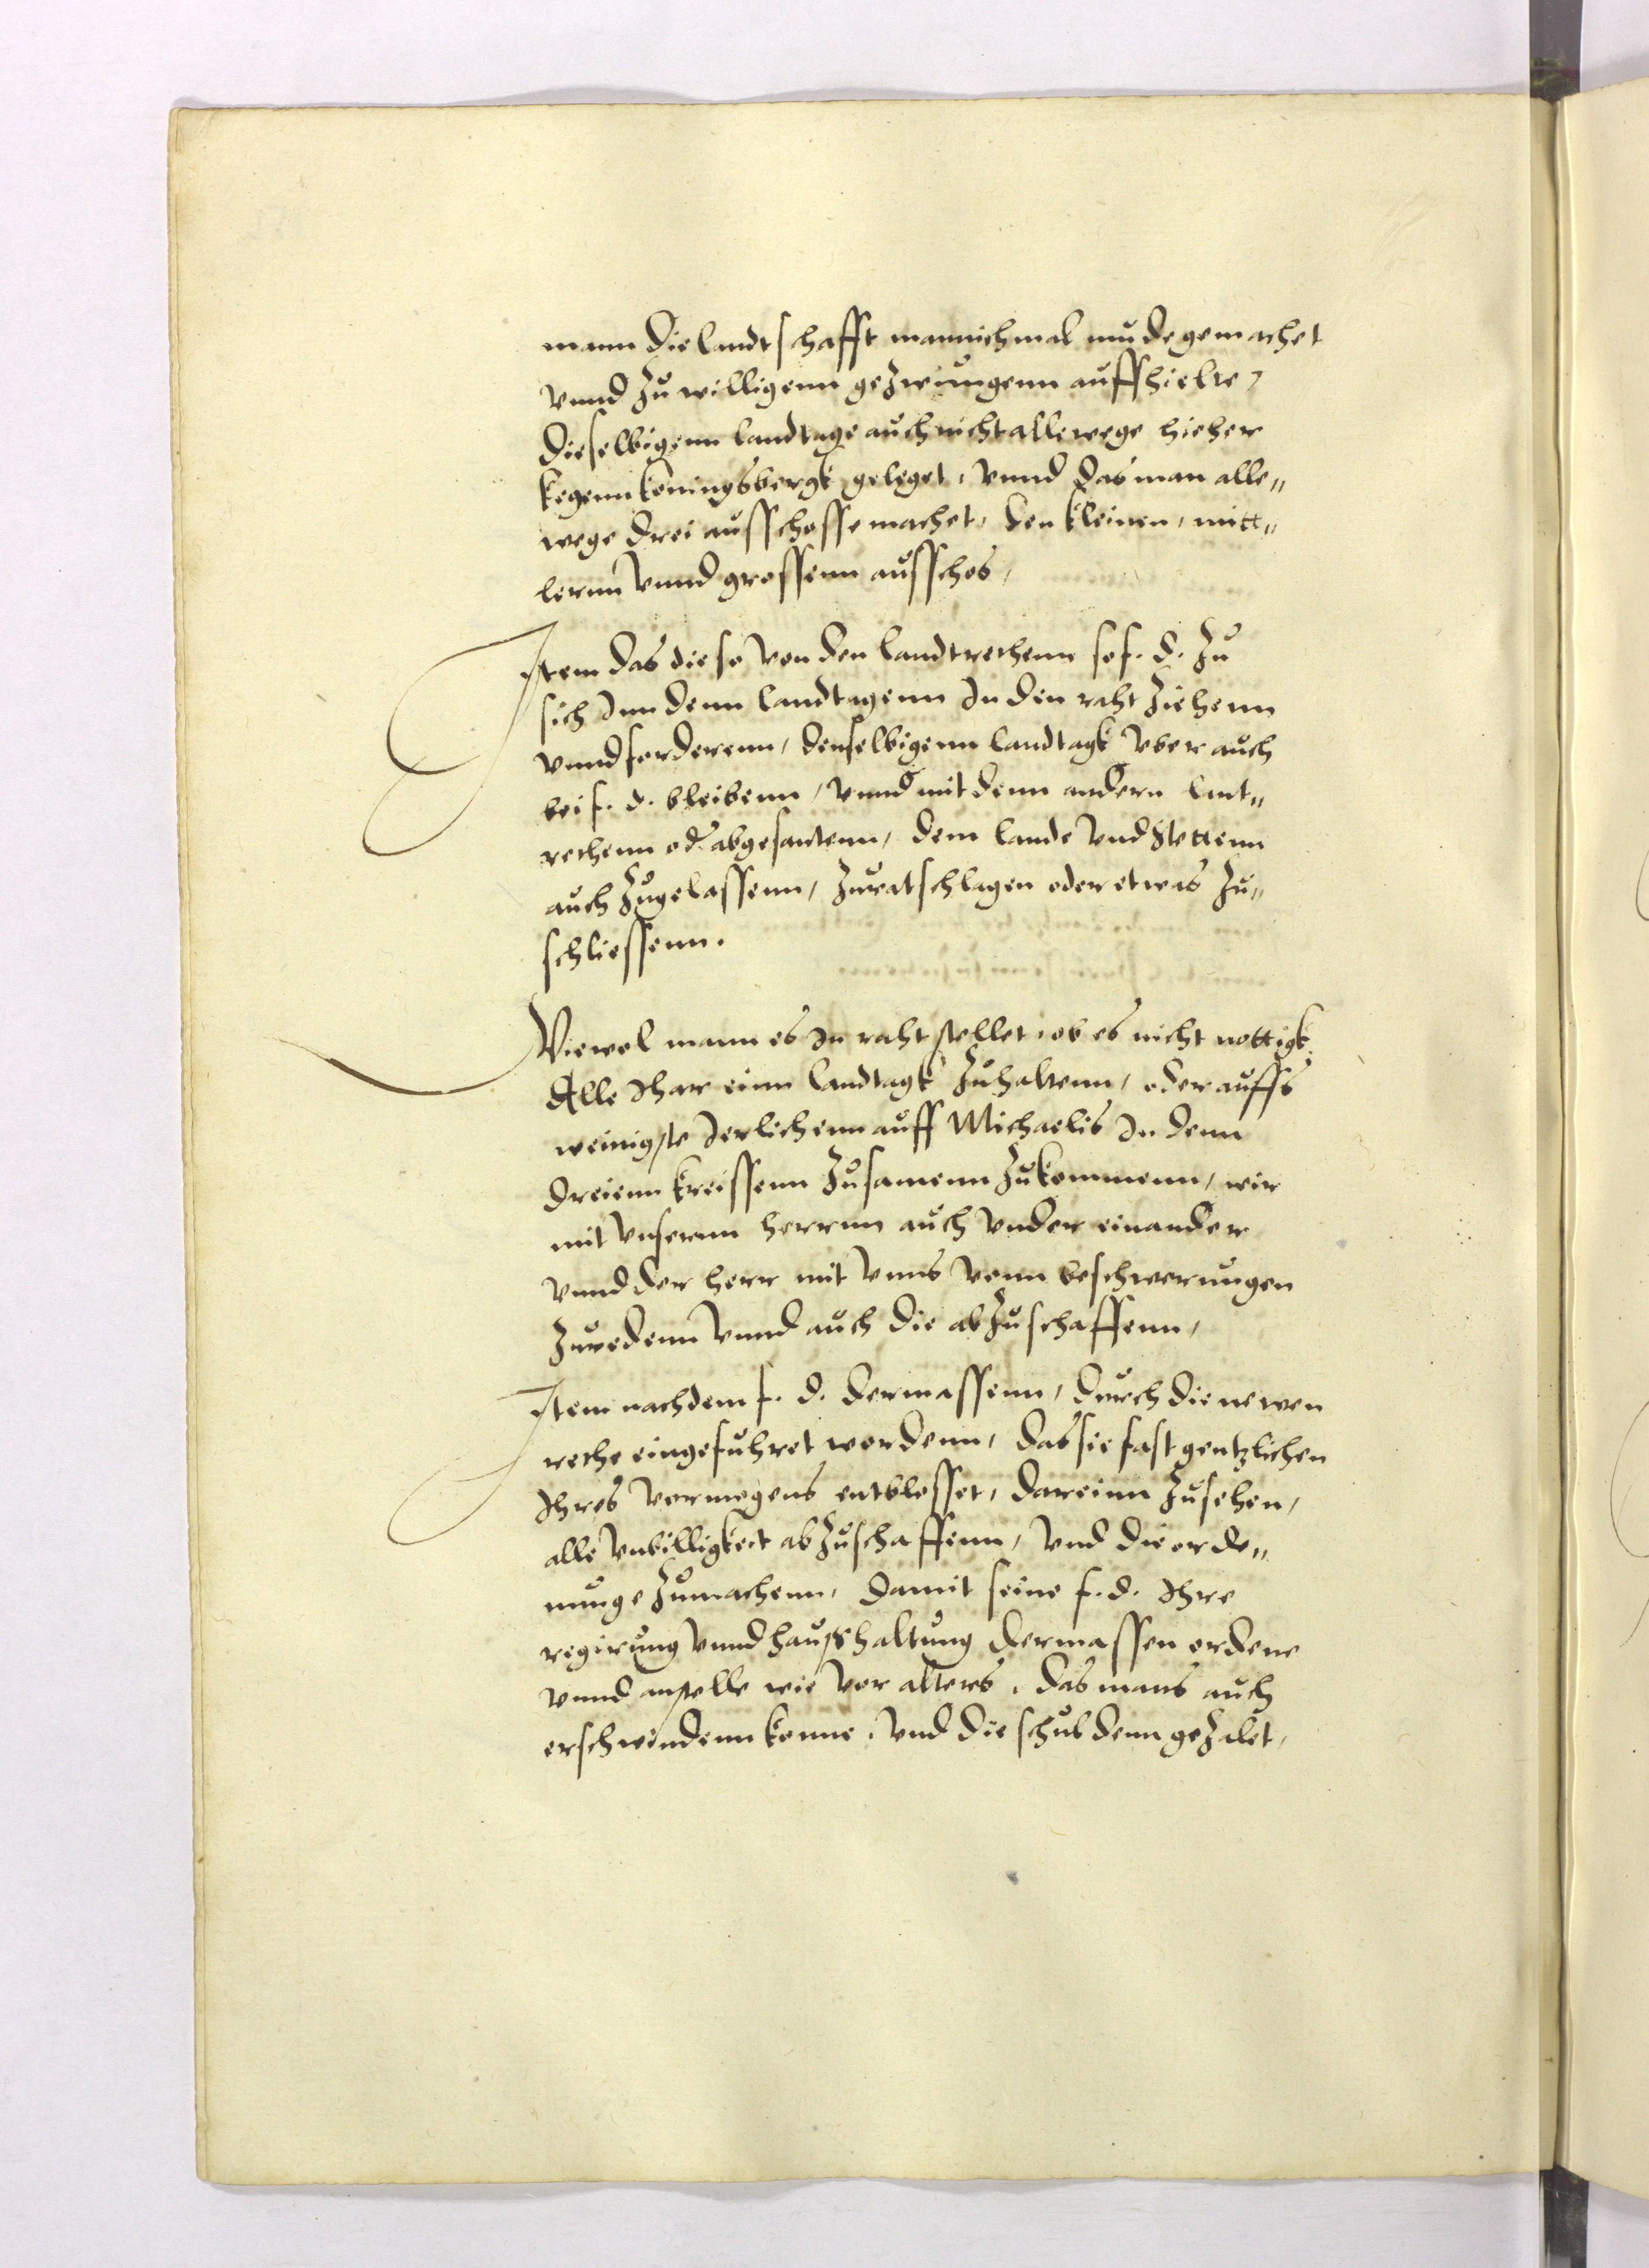 mann die landtschafft mannichmal mude gemachet
vnnd zu willigenn gezwungenn auffhielte,
dieselbigenn landtage auch nicht allewege hieher
kegenn koningsbergk geleget, vnnd das man alle„
wege drei ausschosse machet, den kleinen, mitt„
lernn vnnd grossenn ausschos,
Item das diese von den landtrethenn so f. d. zu
sich Inn denn landtagenn In den raht ziehenn
vnnd forderenn, denselbigenn landtagk vber auch
bei f. d. bleibenn, vnnd mit denn andern lant„
rethenn od. abgesantenn, dem lande vnd Stettenn
auch zugelassenn, zuratschlagen oder etwas zu„
schliessenn.
Wiewol mann es In raht stellet, ob es nicht nottigk
Alle Ihar einn landtagk zuhaltenn, oder auffs
weinigste Ierlichenn auff Michaelis In denn
dreienn kreissenn zusamenn zukommenn, wir
mit vnsernn herrnn auch vnder einander
vnnd der herr mit vnns vonn beschwerungen
zuredenn vnnd auch die abzuschaffenn,
Item nachdem f. d. dermassenn, durch die newen
rethe eingefuhret wordenn, das sie fast gentzlichen
Ihres vermogens entblosset, dareinn zusehen,
alle vnbilligkeit abzuschaffenn, vnd die orde„
nunge zumachenn, damit seine f. d. Ihre
regirung vnnd haußhaltung dermassen ordene
vnnd anstelle wie vor alters, das mans auch
erschwindenn konne, vnd die schuldenn gezalet,